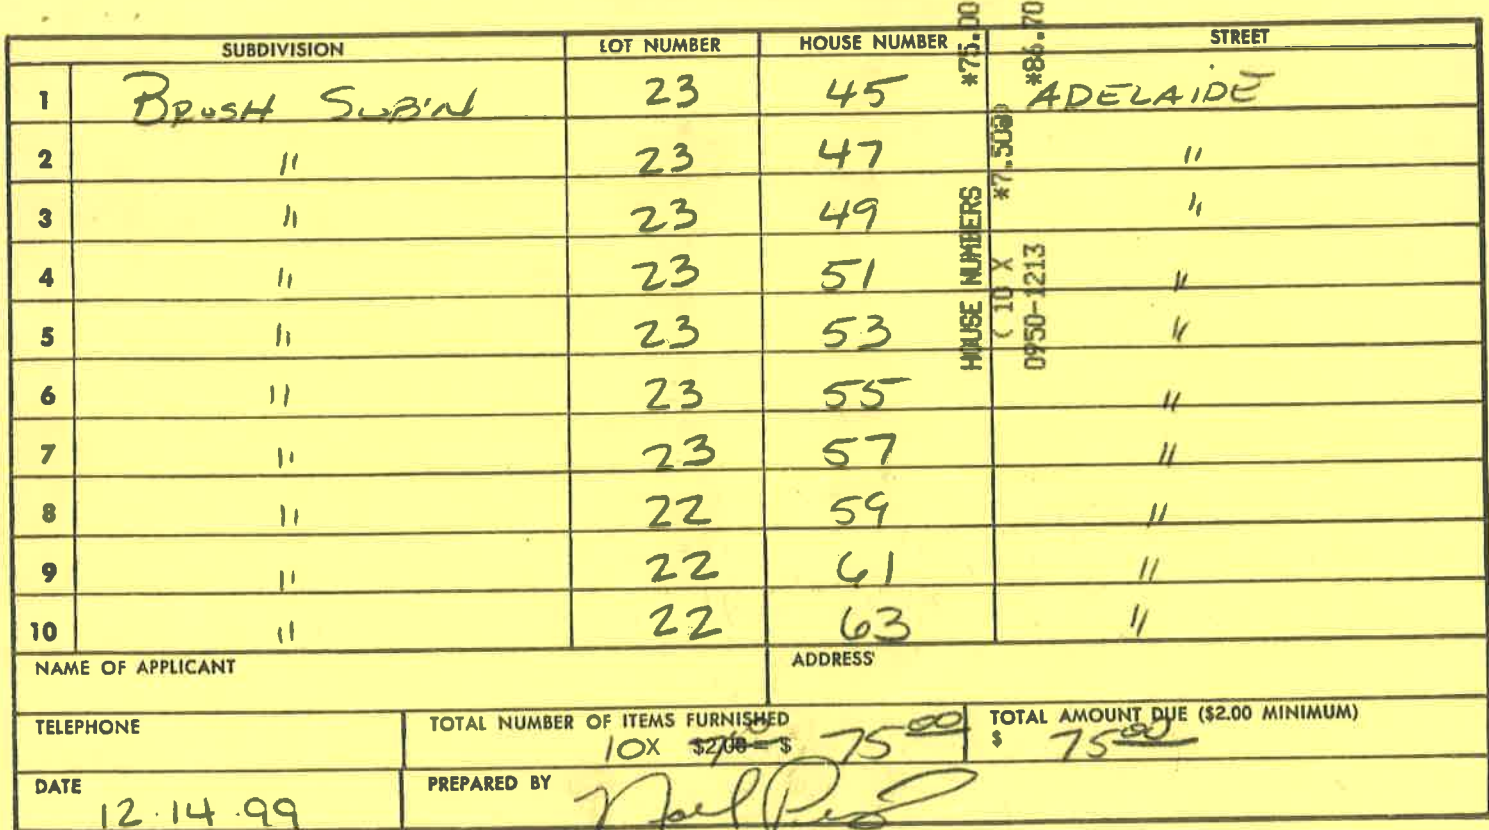 SUBDIVISION LOT NUMBER HOUSE NUMBER STREET
1 BRUSH SUB'N 23 45 ADELAIDE
2 " 23 47 "
3 " 23 49 "
4 " 23 51 "
5 " 23 53 "
6 " 23 55 "
7 " 23 57 "
8 " 22 59 "
9 " 22 61 "
10 " 22 63 "
HOUSE NUMBERS *75.00
( 10 X *7.50@)
0950-1213 *86.70
NAME OF APPLICANT ADDRESS
TELEPHONE TOTAL NUMBER OF ITEMS FURNISHED TOTAL AMOUNT DUE ($2.00 MINIMUM)
10X $2.00 = $ 75 00 $ 75 00
DATE PREPARED BY
12.14.99 Noel